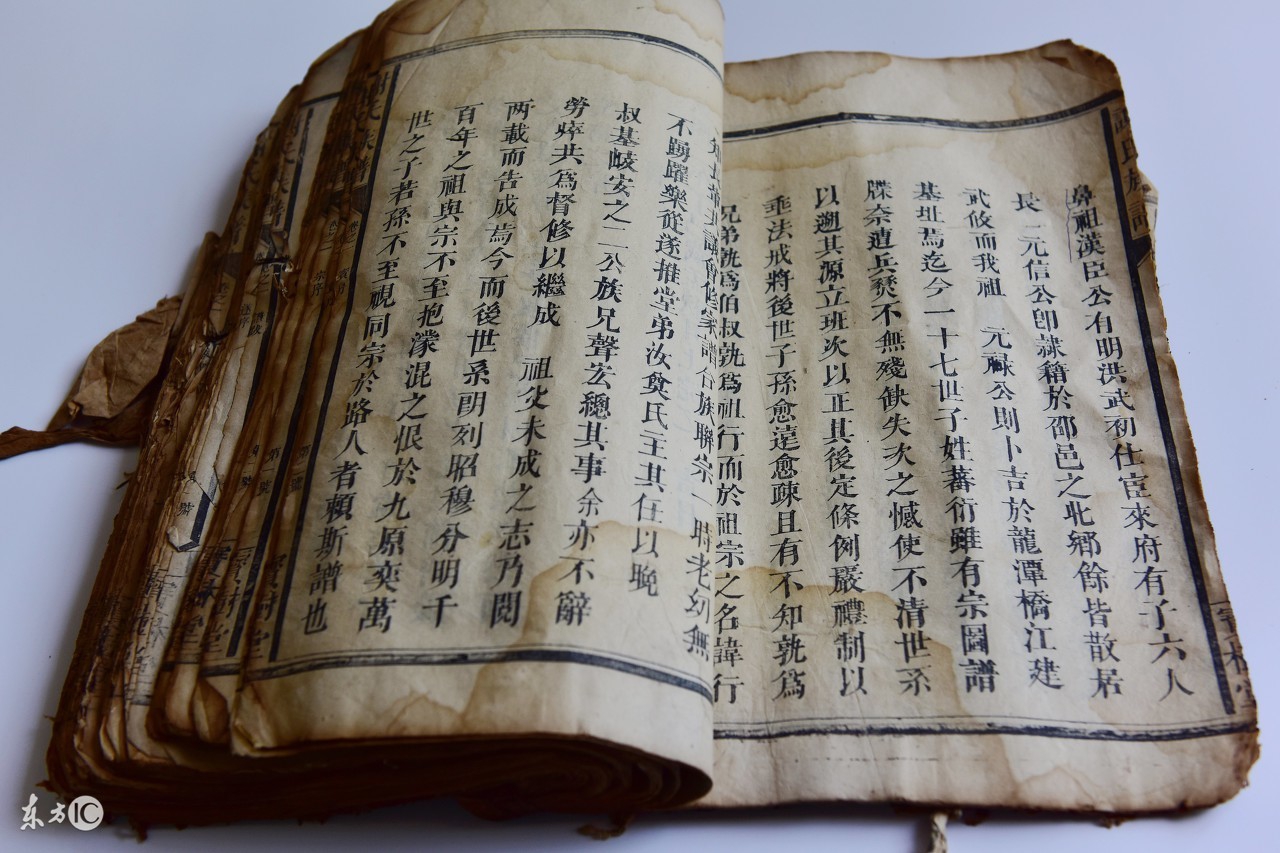 鼻祖漢臣公有明洪武初仕宦來府有子六人
長 元信公卽隷籍於邵邑之北鄉餘皆散居
武攸而我祖 元祿公則卜吉於龍潭橋江建
基址焉迄今一十七世子姓蕃衍雖有宗圖譜
牒奈遭兵燹不無殘缺失次之憾使不清世系
以遡其源立班次以正其後定條例嚴禮制以
垂法戒將後世子孫愈遠愈疎且有不知孰爲
兄弟孰爲伯叔孰爲祖行而於祖宗之名諱行
族聯宗一時老幼無
不踴躍樂從遂推堂弟汝奠氏王其任以晚
叔基岐安之二公族兄聲宏總其事余亦不辭
勞瘁共爲督修以繼成 祖父未成之志乃閱
两載而告成焉今而後世系明列昭穆分明千
百年之祖與宗不至抱濛混之恨於九原奕萬
世之子若孫不至視同宗於路人者賴斯譜也
氏族譜
東方IC